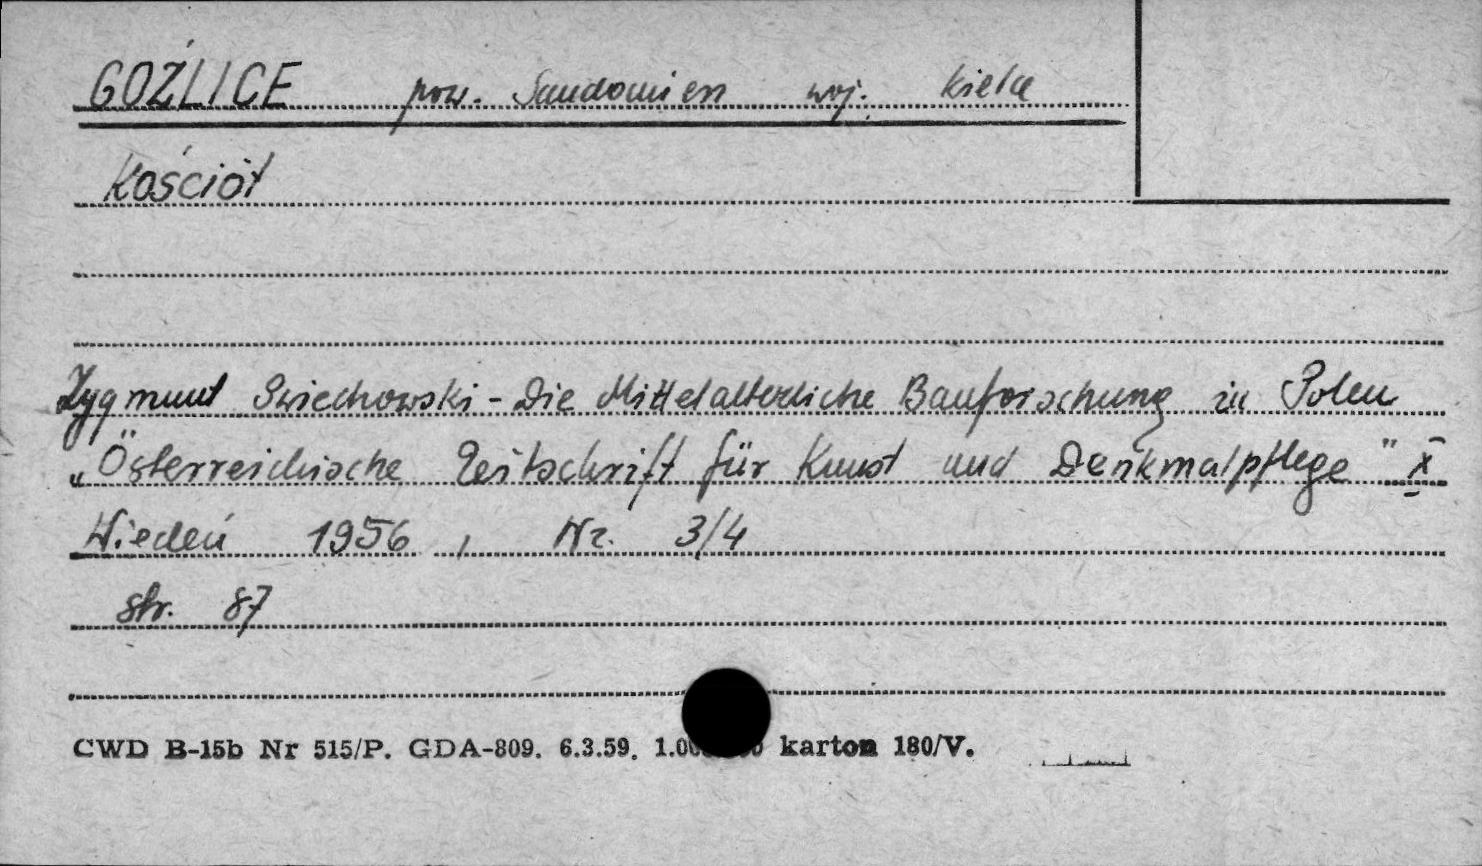 GOŹLICE pow. Sandomierz woj. Kielce
Kościół
Zygmunt Swiechowski - Die Mittelalterliche Bauforschung in Polen
„Österreichische Zeitschrift für Kunst und Denkmalpflege" X
Wiedeń 1956, Nr. 3/4
str. 87
CWD B-15b Nr 515/P. GDA-809. 6.3.59. karton 180/V.